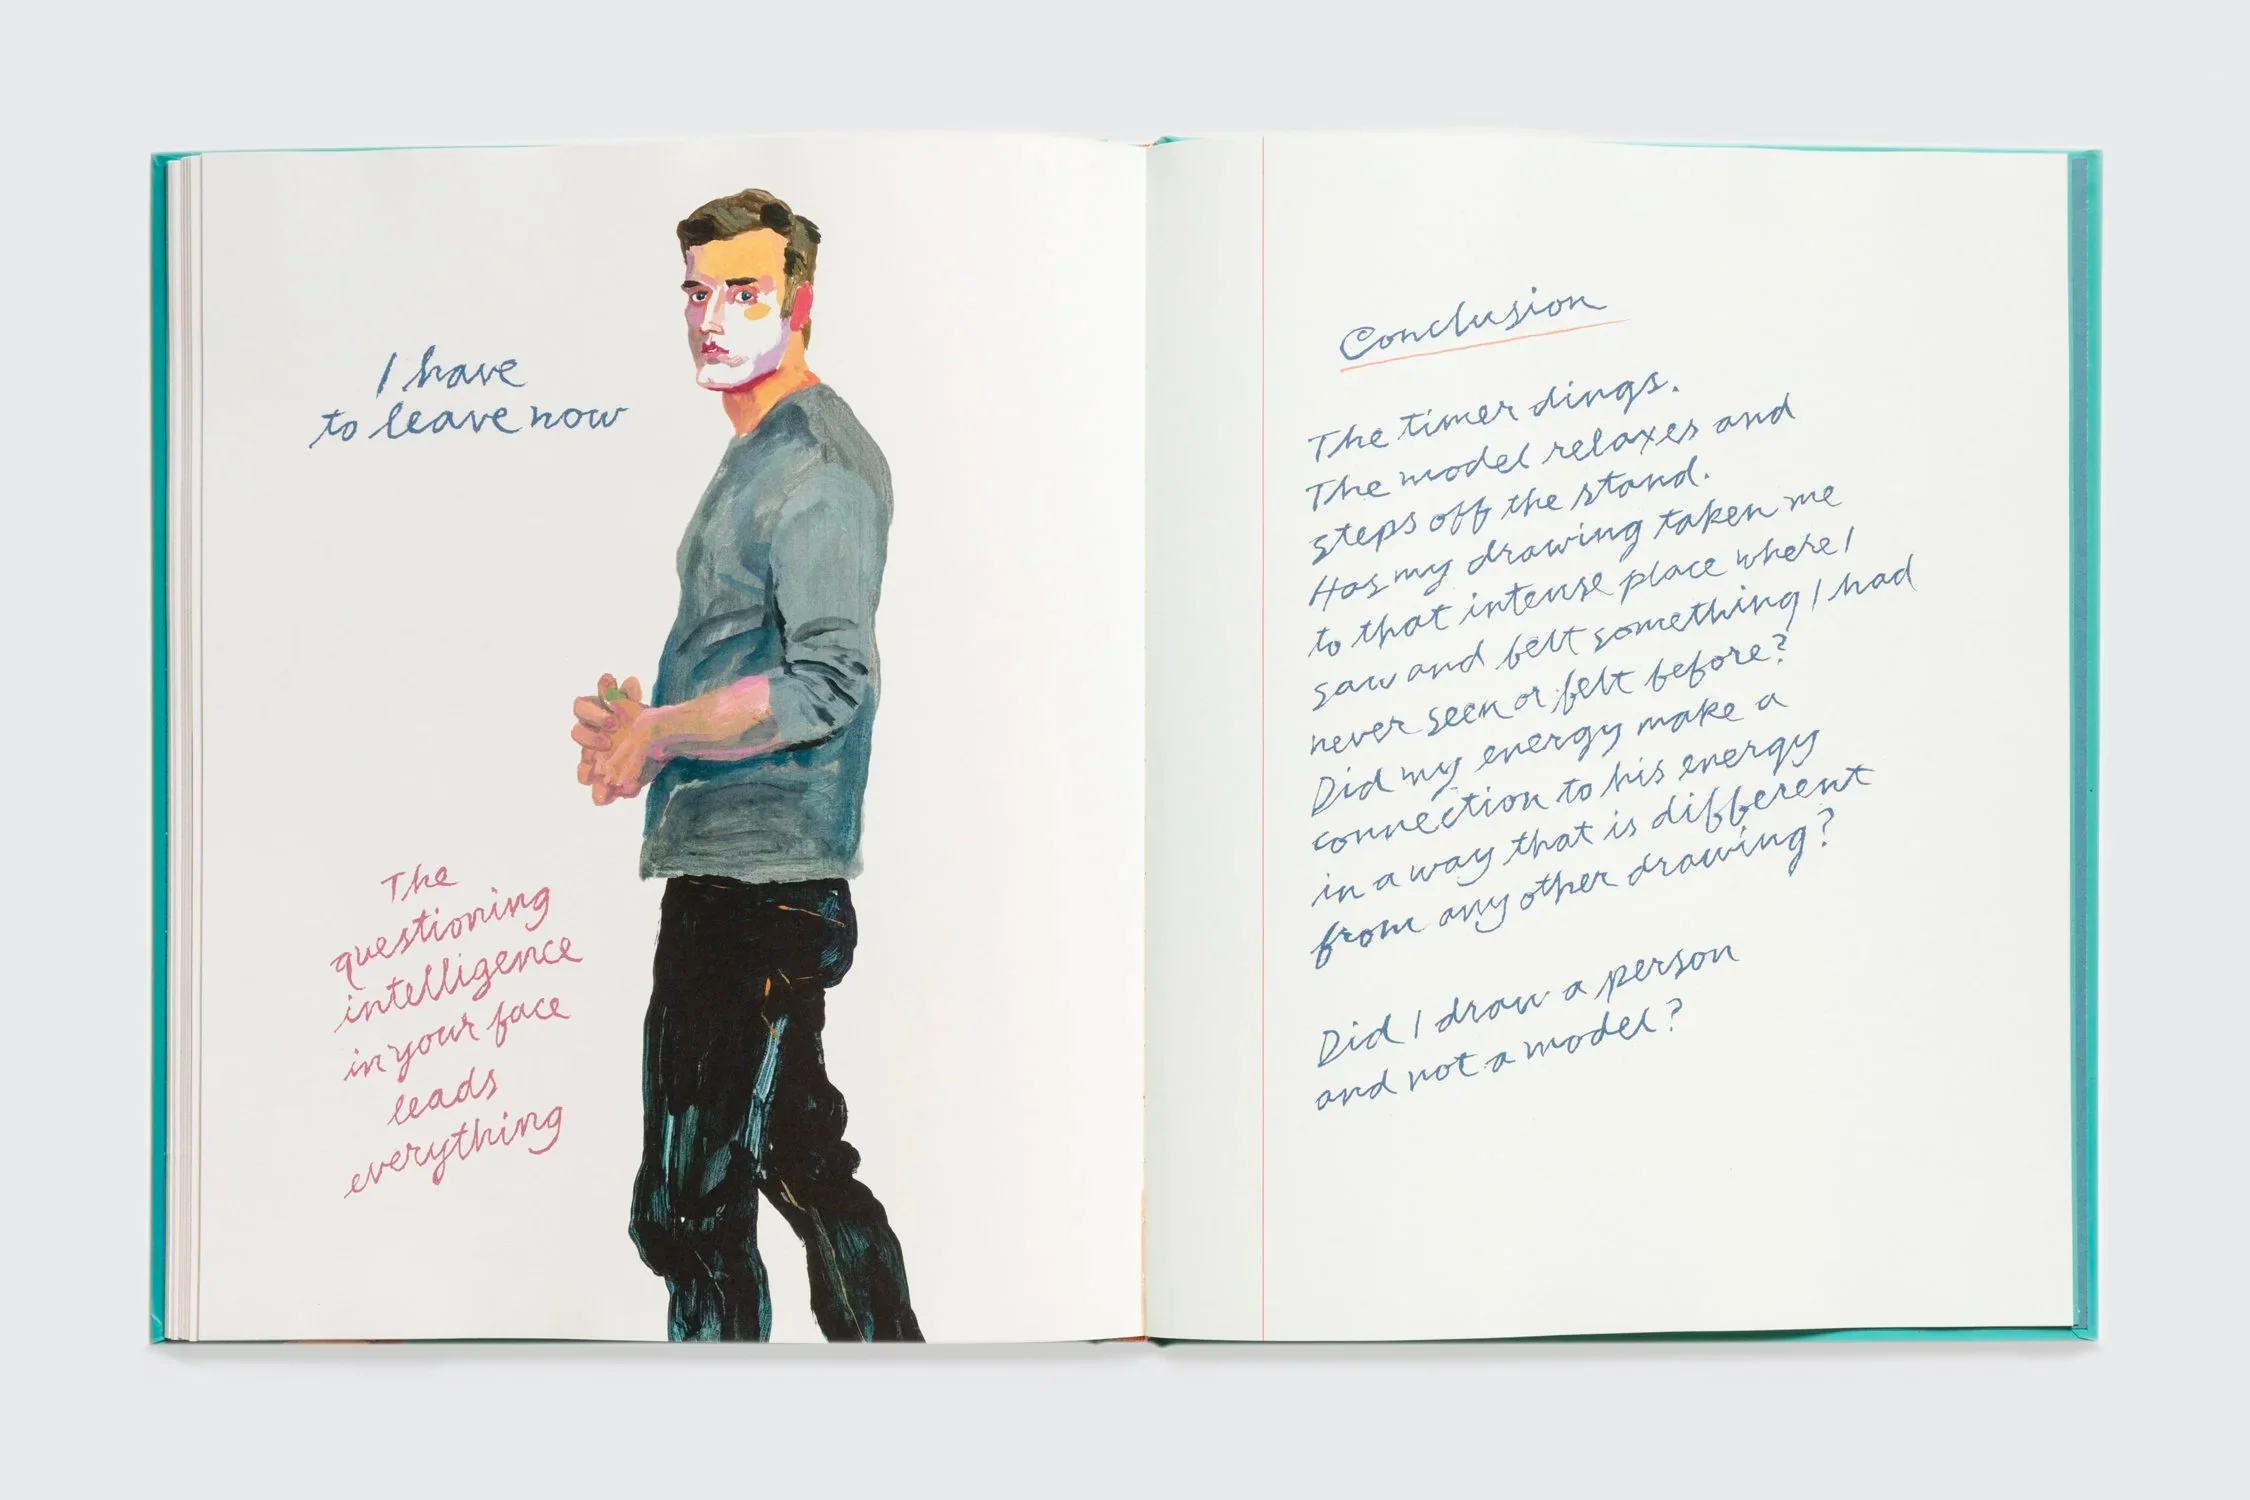 I have
to leave now
The
questioning
intelligence
in your face
leads
everything
Conclusion
The timer dings.
The model relaxes and
steps off the stand.
Has my drawing taken me
to that intense place where I
saw and felt something I had
never seen or felt before?
Did my energy make a
connection to his energy
in a way that is different
from any other drawing?
Did I draw a person
and not a model?